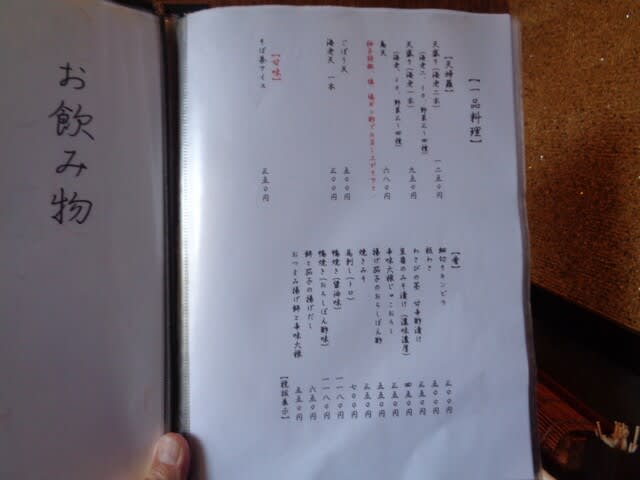 お飲み物
【一品料理】
【天婦羅】
天盛り(海老二本) 一二五〇円
(海老二、イカ、野菜三〜四種)
天盛り(海老一本) 九五〇円
(海老、イカ、野菜三〜四種)
鳥天 六八〇円
ごぼう天 五〇〇円
海老天 一本 三〇〇円
【甘味】
そば茶アイス 三五〇円
【肴】
細切りキンピラ 三〇〇円
板わさ 五〇〇円
わさびの茎 甘辛酢漬け 三五〇円
豆腐のみそ漬け(濃味濃厚) 四五〇円
辛味大根じゃこおろし 三五〇円
揚げ茄子のおろしぽん酢 五五〇円
焼きみそ 三五〇円
馬刺し(トロ) 七〇〇円
鴨焼き(醤油味) 一一八〇円
鴨焼き(おろしぽん酢味) 一一八〇円
餅と茄子の揚げだし 六五〇円
おつまみ揚げ餅と辛味大根 五五〇円
【税抜表示】